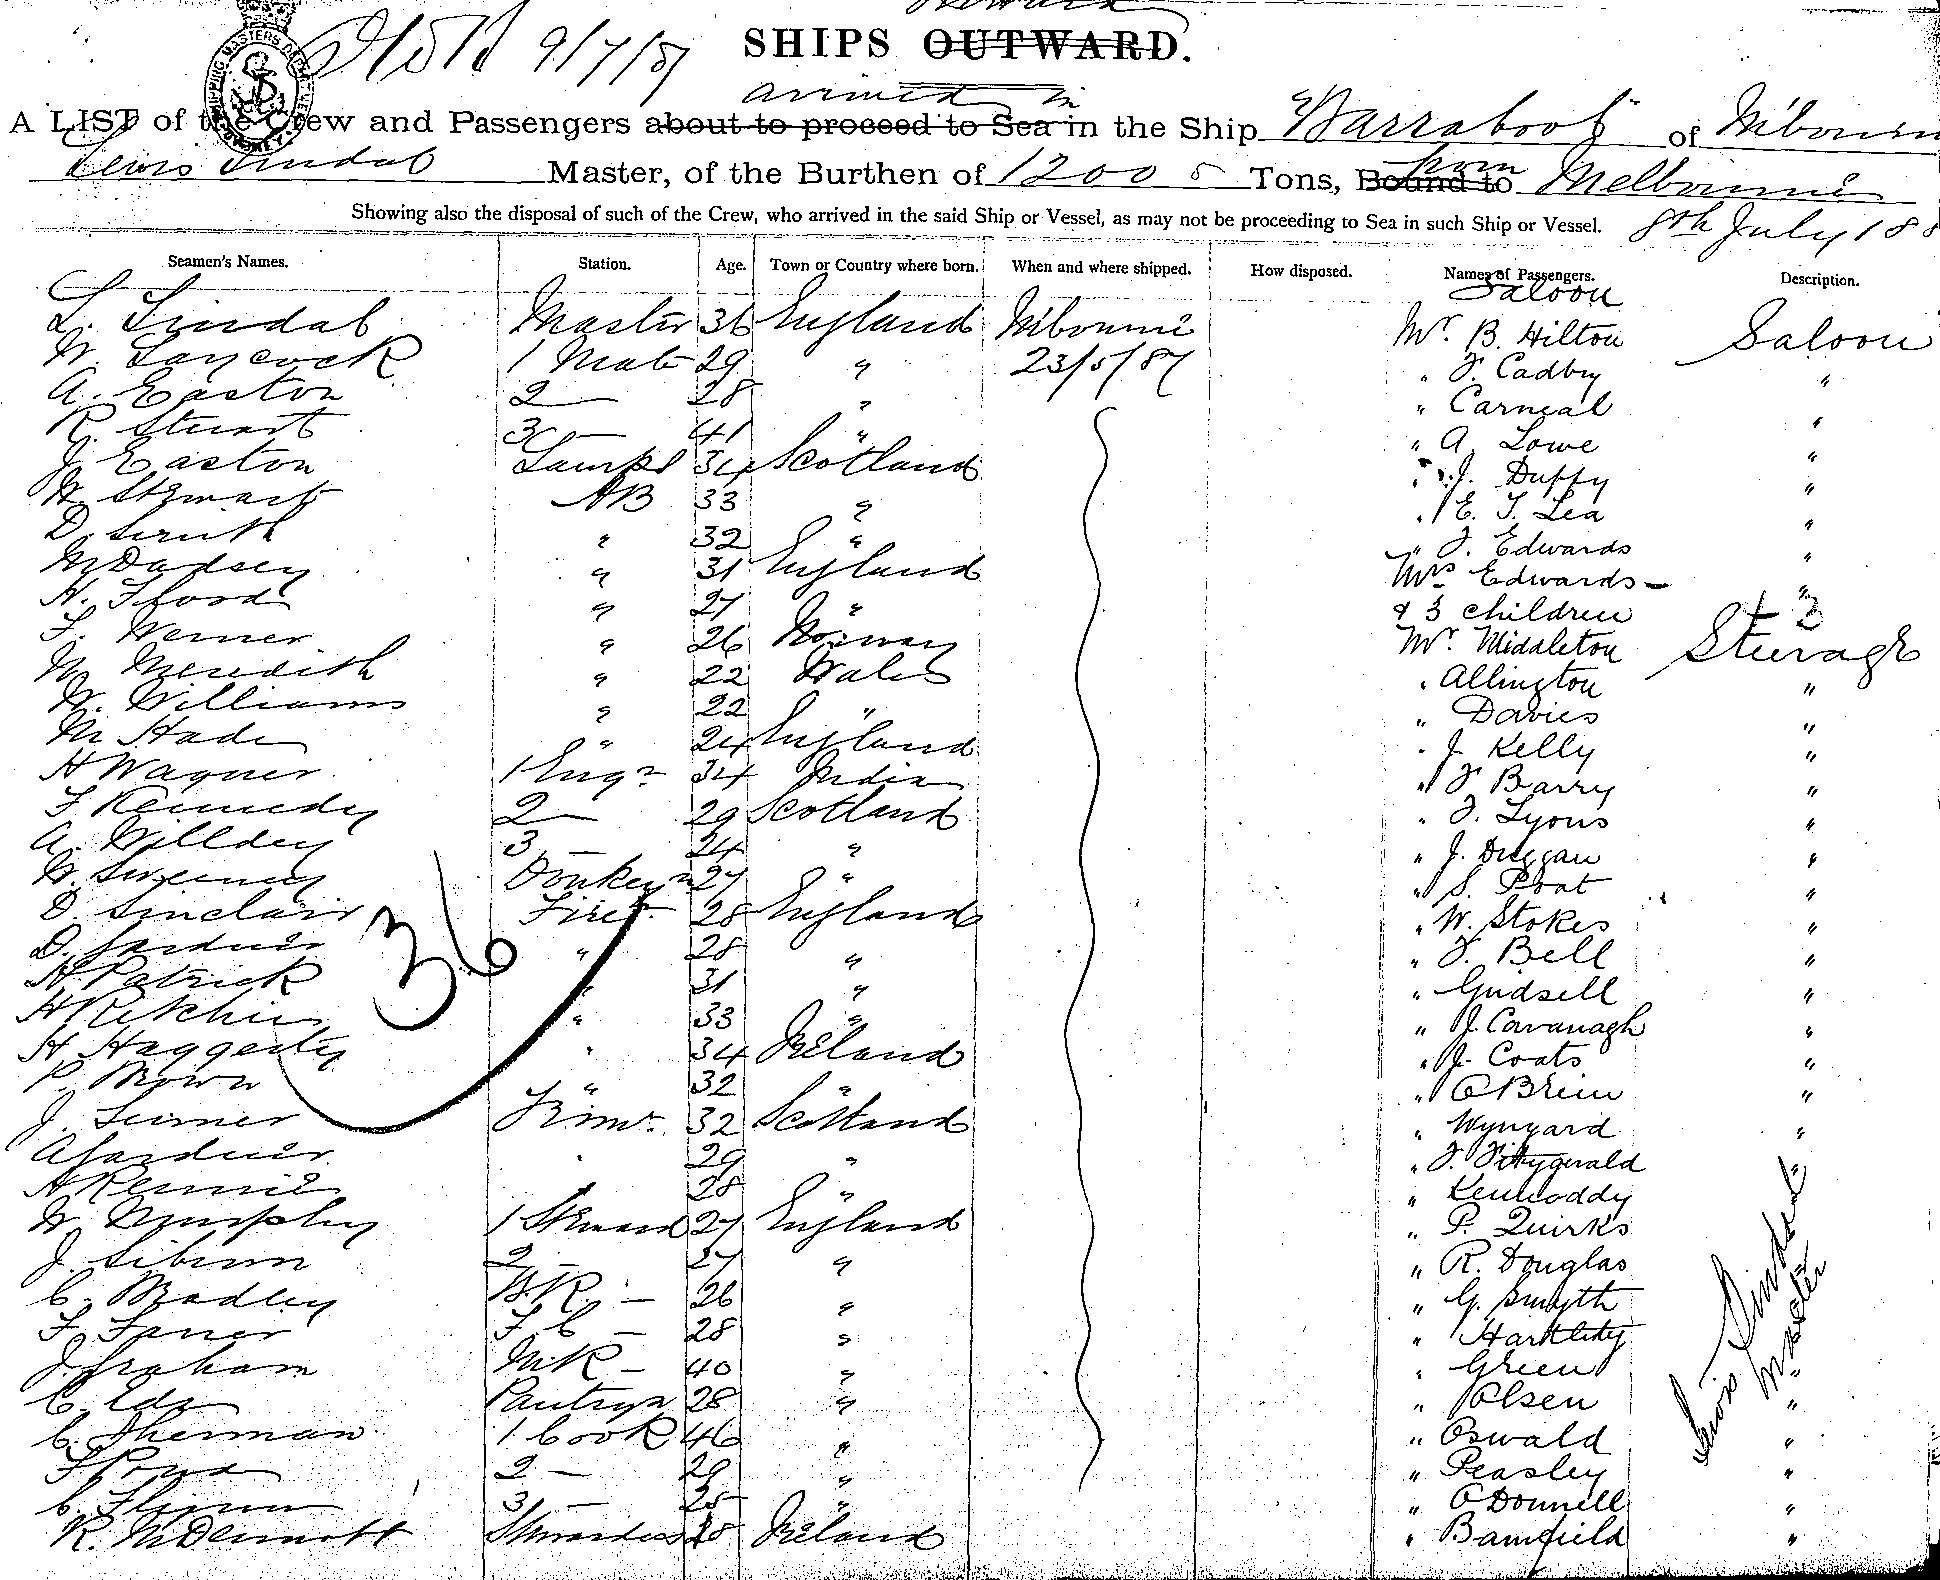 9/7/87
SHIPS OUTWARD.
arrived in
A LIST of the Crew and Passengers about to proceed to Sea in the Ship "Barrabool" of Mlbourne
Lewis Lindal Master, of the Burthen of 1200 Tons, Bound to from Melbourne
Showing also the disposal of such of the Crew, who arrived in the said Ship or Vessel, as may not be proceeding to Sea in such Ship or Vessel. 8th July 188
Seamen's Names. Station. Age. Town or Country where born. When and where shipped. How disposed. Names of Passengers. Description.
Saloon
L. Lindal Master 36 England Mlbourne Mr. B. Hilton Saloon
W. Laycock 1 Mate 29 " 23/5/87 " F. Cadby "
A. Easton 2 — 28 " " Carneal "
R. Stuart 3 — 41 " " A. Lowe "
J. Easton Lamps 34 Scotland " J. Duffy "
W. Stewart AB 33 " " E. T. Lea "
D. Smith " 32 " " J. Edwards "
M Dadsey " 31 England Mrs Edwards "
H. Fford " 27 " & 3 children & 3
F. Werner " 26 Norway Mr. Middleton Steerage
W. Meredith " 22 Wales " Allington "
W. Williams " 22 " " Davies "
M Hade " 24 England " J. Kelly "
H Wagner 1 Engr 34 India " F Barry "
F Kennedy 2 — 29 Scotland " J. Lyons "
A. Willdey 3 — 24 " " J. Duggan "
W. Sweeney Donkeyn 27 " " S. Prat "
D. Sinclair Firen 28 England " W. Stokes "
D. Gardner " 28 " " F. Bell "
H Patrick " 31 " " Gudsell "
H Ritchie " 33 " " J. Cavanagh "
H Haggerty " 34 Ireland " J. Coats "
P. Brown " 32 " " O'Brien "
J. Turner Trimr. 32 Scotland " Wynyard "
A Gardner " 29 " " F. Fitzgerald "
H Rennie 28 " " Kenhoddy
W. Murphy 1 Steward 27 England " P. Quirks
J. Siburn 2 — 27 " " R. Douglas
C. Bradley B.R. — 26 " " G. Smyth
F. Farrer F C — 28 " " Hartley
J. Graham M.R — 40 " " Green "
C. Ede Pantryn 28 " " Olsen "
C. Sherman 1 Cook 46 " " Oswald "
F Pond 2 — 29 " " Peasley "
C. Flynn 3 — 25 " " O'Donnell "
R. McDermott Stewardess 28 Ireland " Bamfield "
36
Lewis Lindal
Master